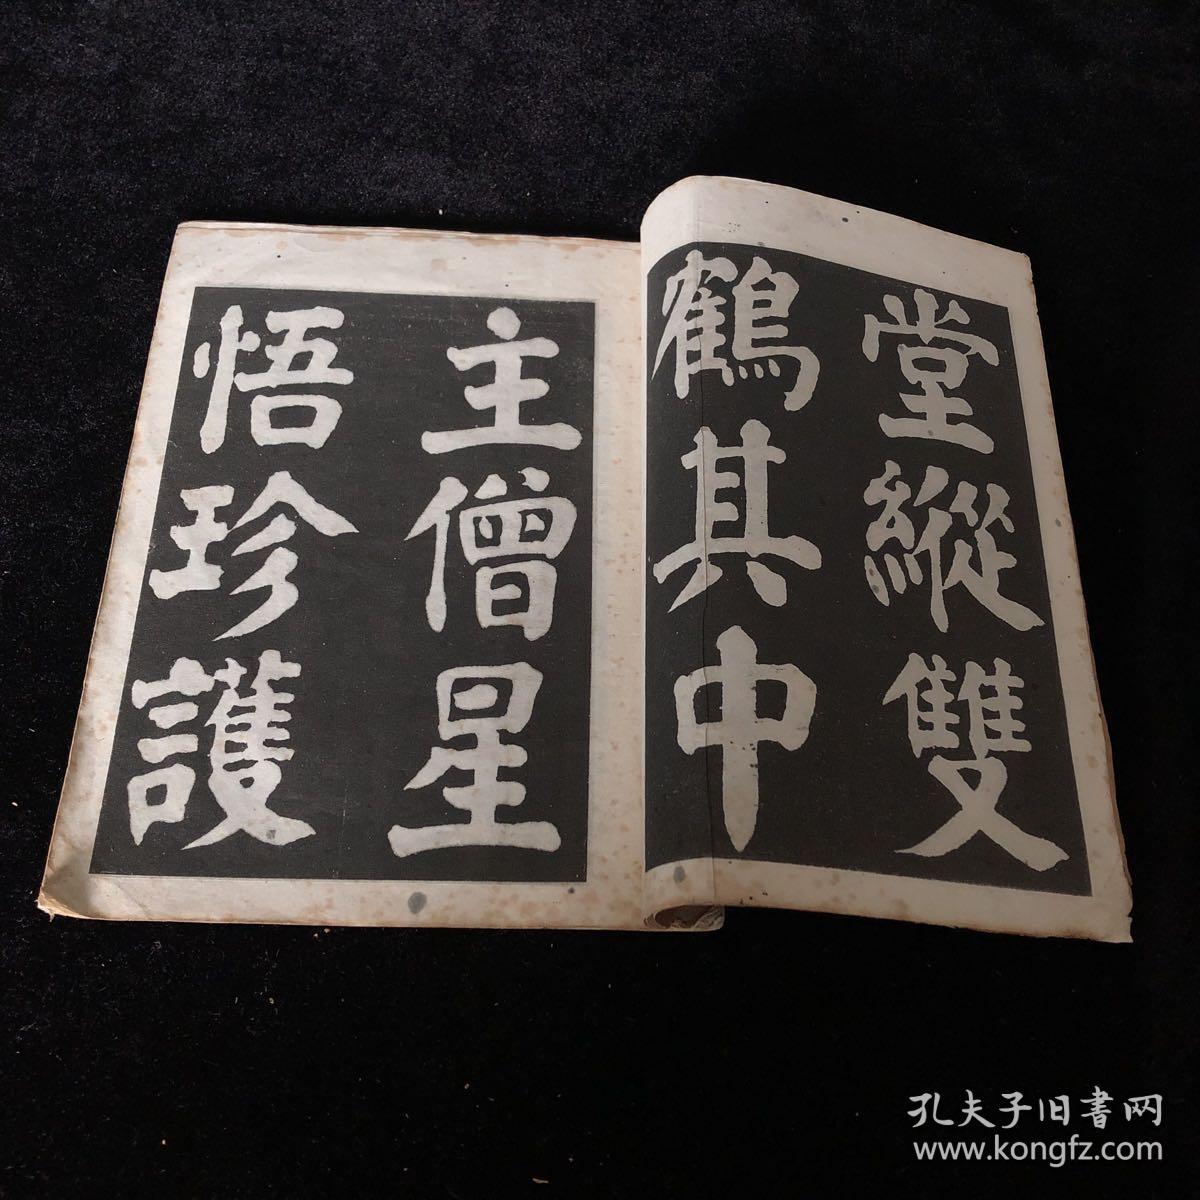 堂縱雙
鶴其中
主僧星
悟珍護
孔夫子旧書网
www.kongfz.com